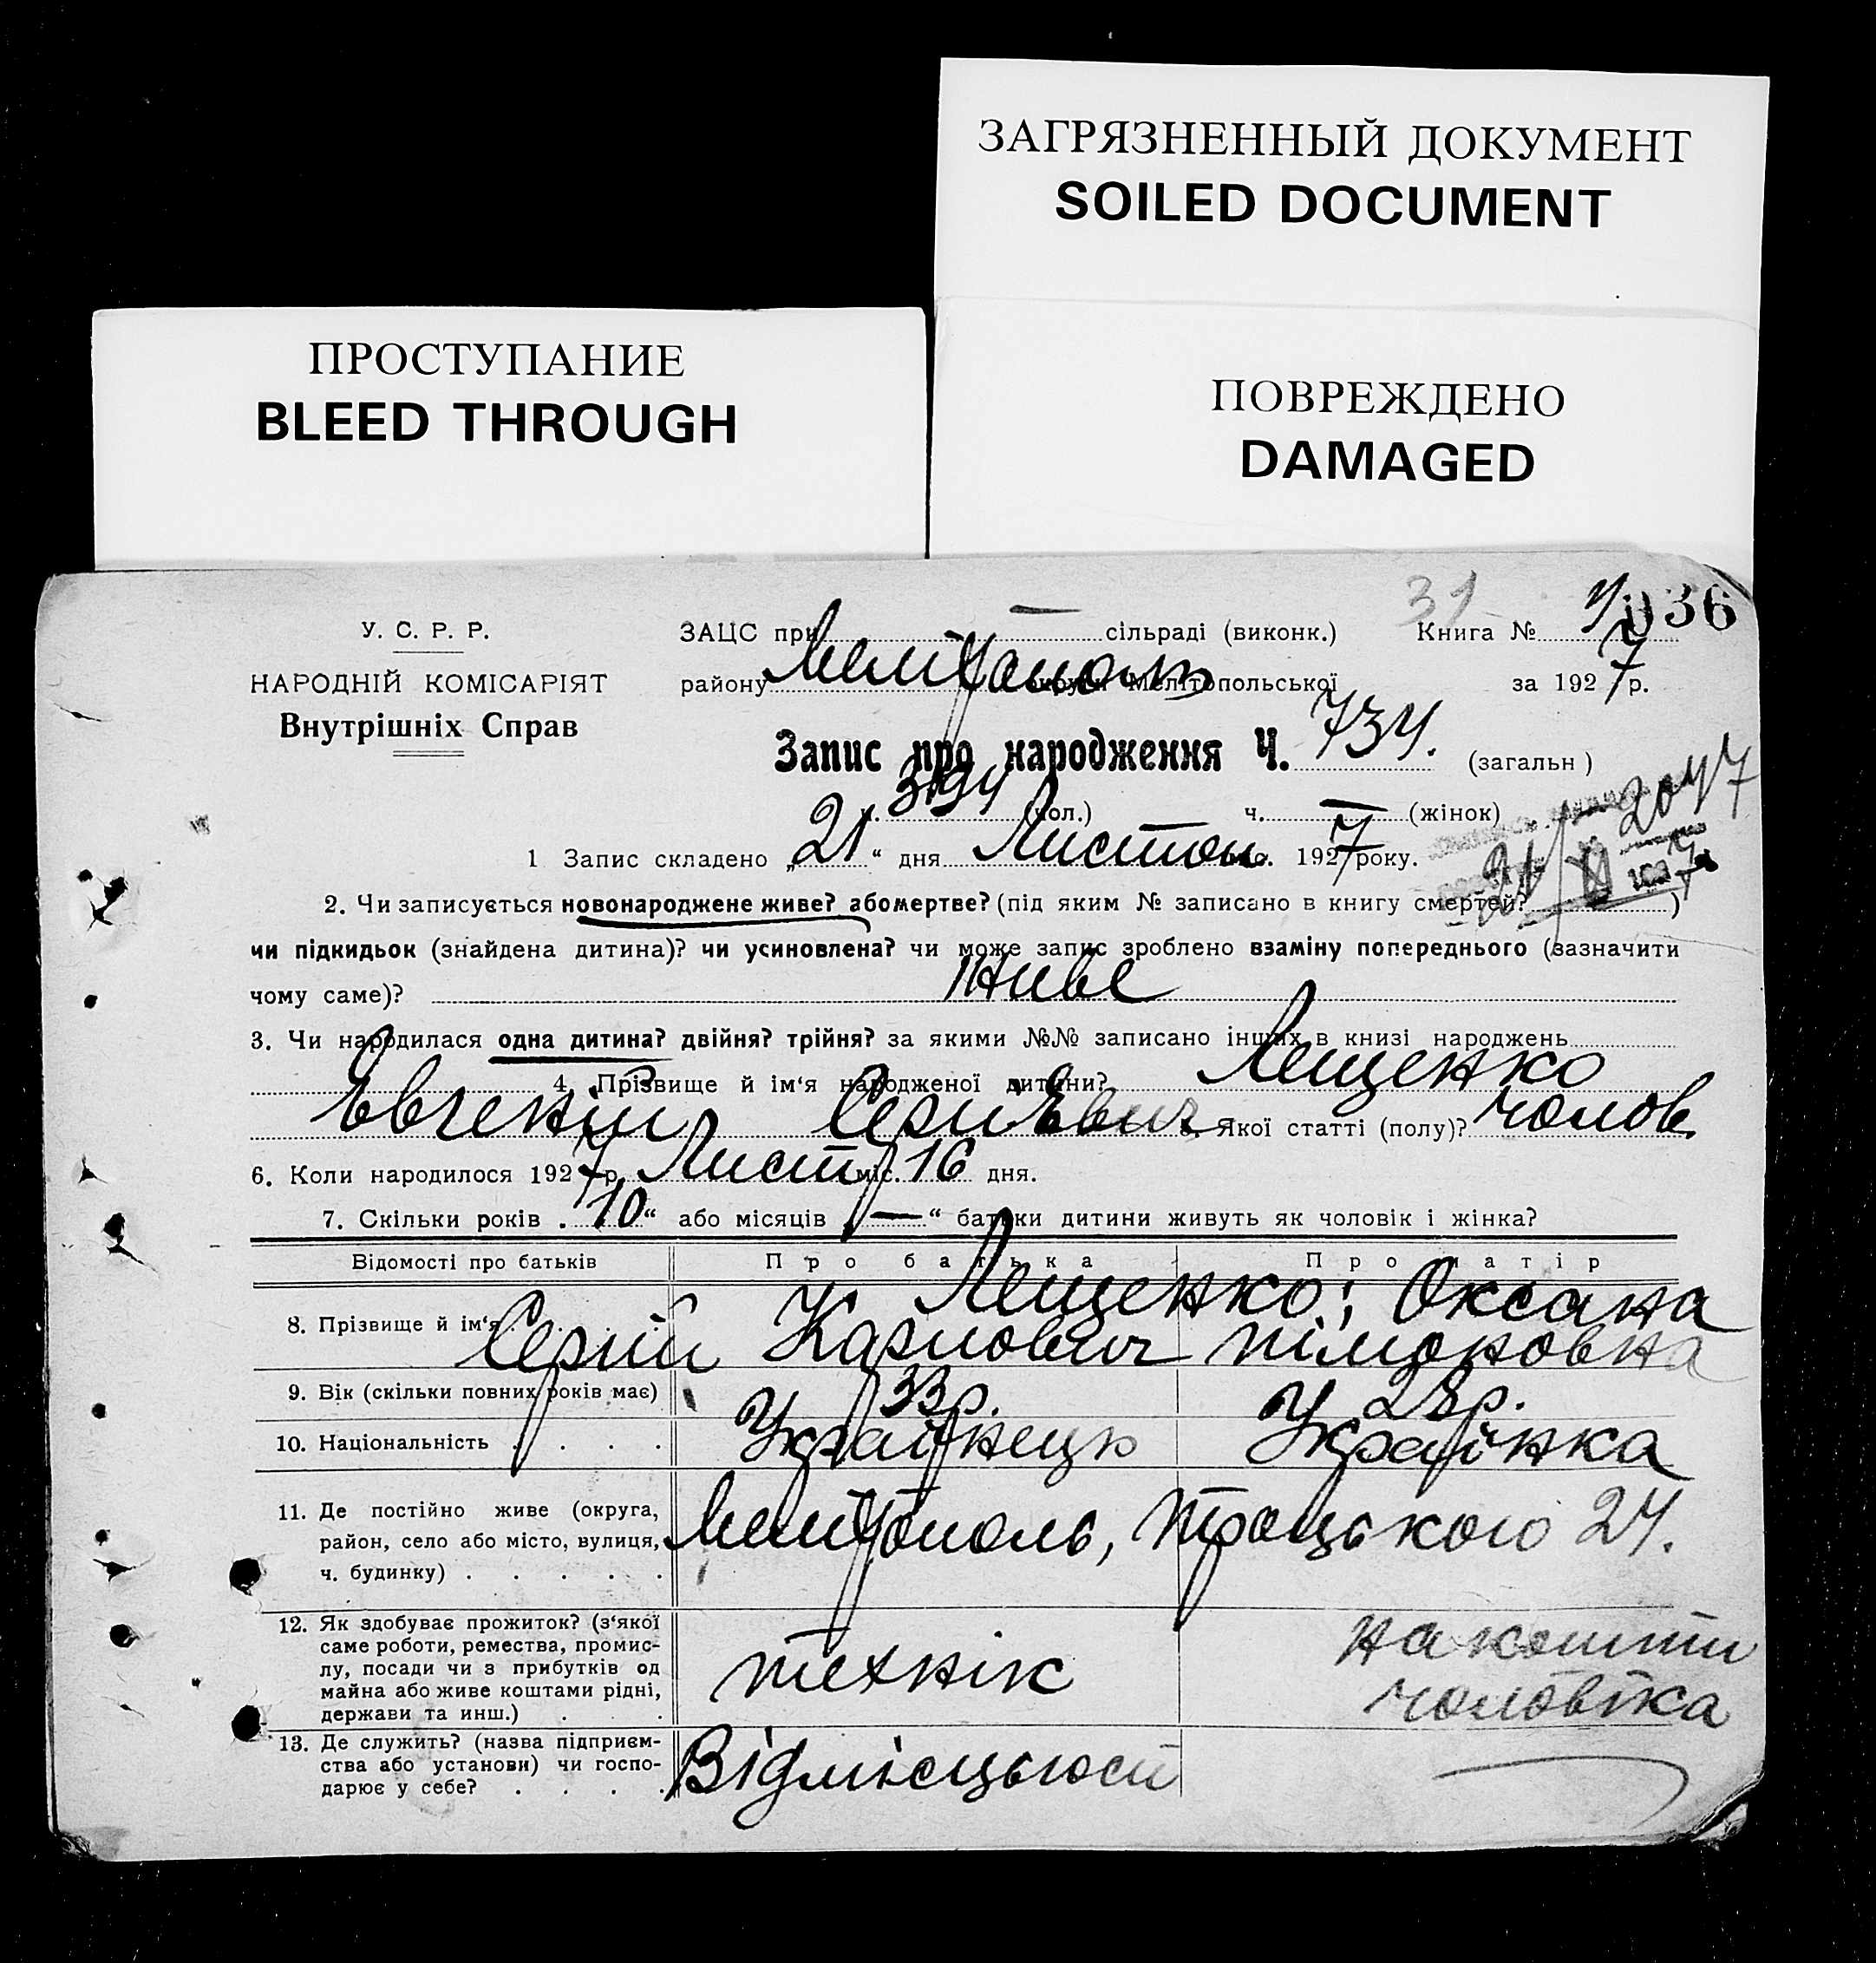 ЗАГРЯЗНЕННЫЙ ДОКУМЕНТ
SOILED DOCUMENT
ПРОСТУПАНИЕ
BLEED THROUGH
ПОВРЕЖДЕНО
DAMAGED
31
036
У. С. Р. Р.
НАРОДНІЙ КОМІСАРІЯТ
Внутрішніх Справ
ЗАЦС при — сільраді (виконк.) Книга №
району Мелітополь округи Мелітопольської за 1927 р.
Запис про народження Ч. 734. (загальн)
ч. 394 (чол.) ч. — (жінок)
1 Запис складено „21“ дня Листоп. 1927 року.
2. Чи записується новонароджене живе? або мертве? (під яким № записано в книгу смертей? )
чи підкидьок (знайдена дитина)? чи усиновлена? чи може запис зроблено взаміну попереднього (зазначити
чому саме)? Живе
3. Чи народилася одна дитина? двійня? трійня? за якими №№ записано інших в книзі народжень
4. Прізвище й ім‘я народженої дитини? Лещенко
Евгеній Сергиевич 5. Якої статті (полу)? чолов.
6. Коли народилося 1927 р. Лист міс. 16 дня.
7. Скільки років „10“ або місяців „—“ батьки дитини живуть як чоловік і жінка?
Відомості про батьків Про батька Про матір
8. Прізвище й ім‘я Лещенко; Оксана
Сергій Карпович Тімоновна
9. Вік (скільки повних років має) 33р. 28р.
10. Національність Українець Українка
11. Де постійно живе (округа,
район, село або місто, вулиця,
ч. будинку) Мелітополь, Троцького 24.
12. Як здобуває прожиток? (з‘якої
саме роботи, ремества, промис-
лу, посади чи з прибутків од
майна або живе коштами рідні,
держави та инш.) технік на кошти
чоловіка
13. Де служить? (назва підприєм-
ства або установи) чи госпо-
дарює у себе? Відмісцьгосп